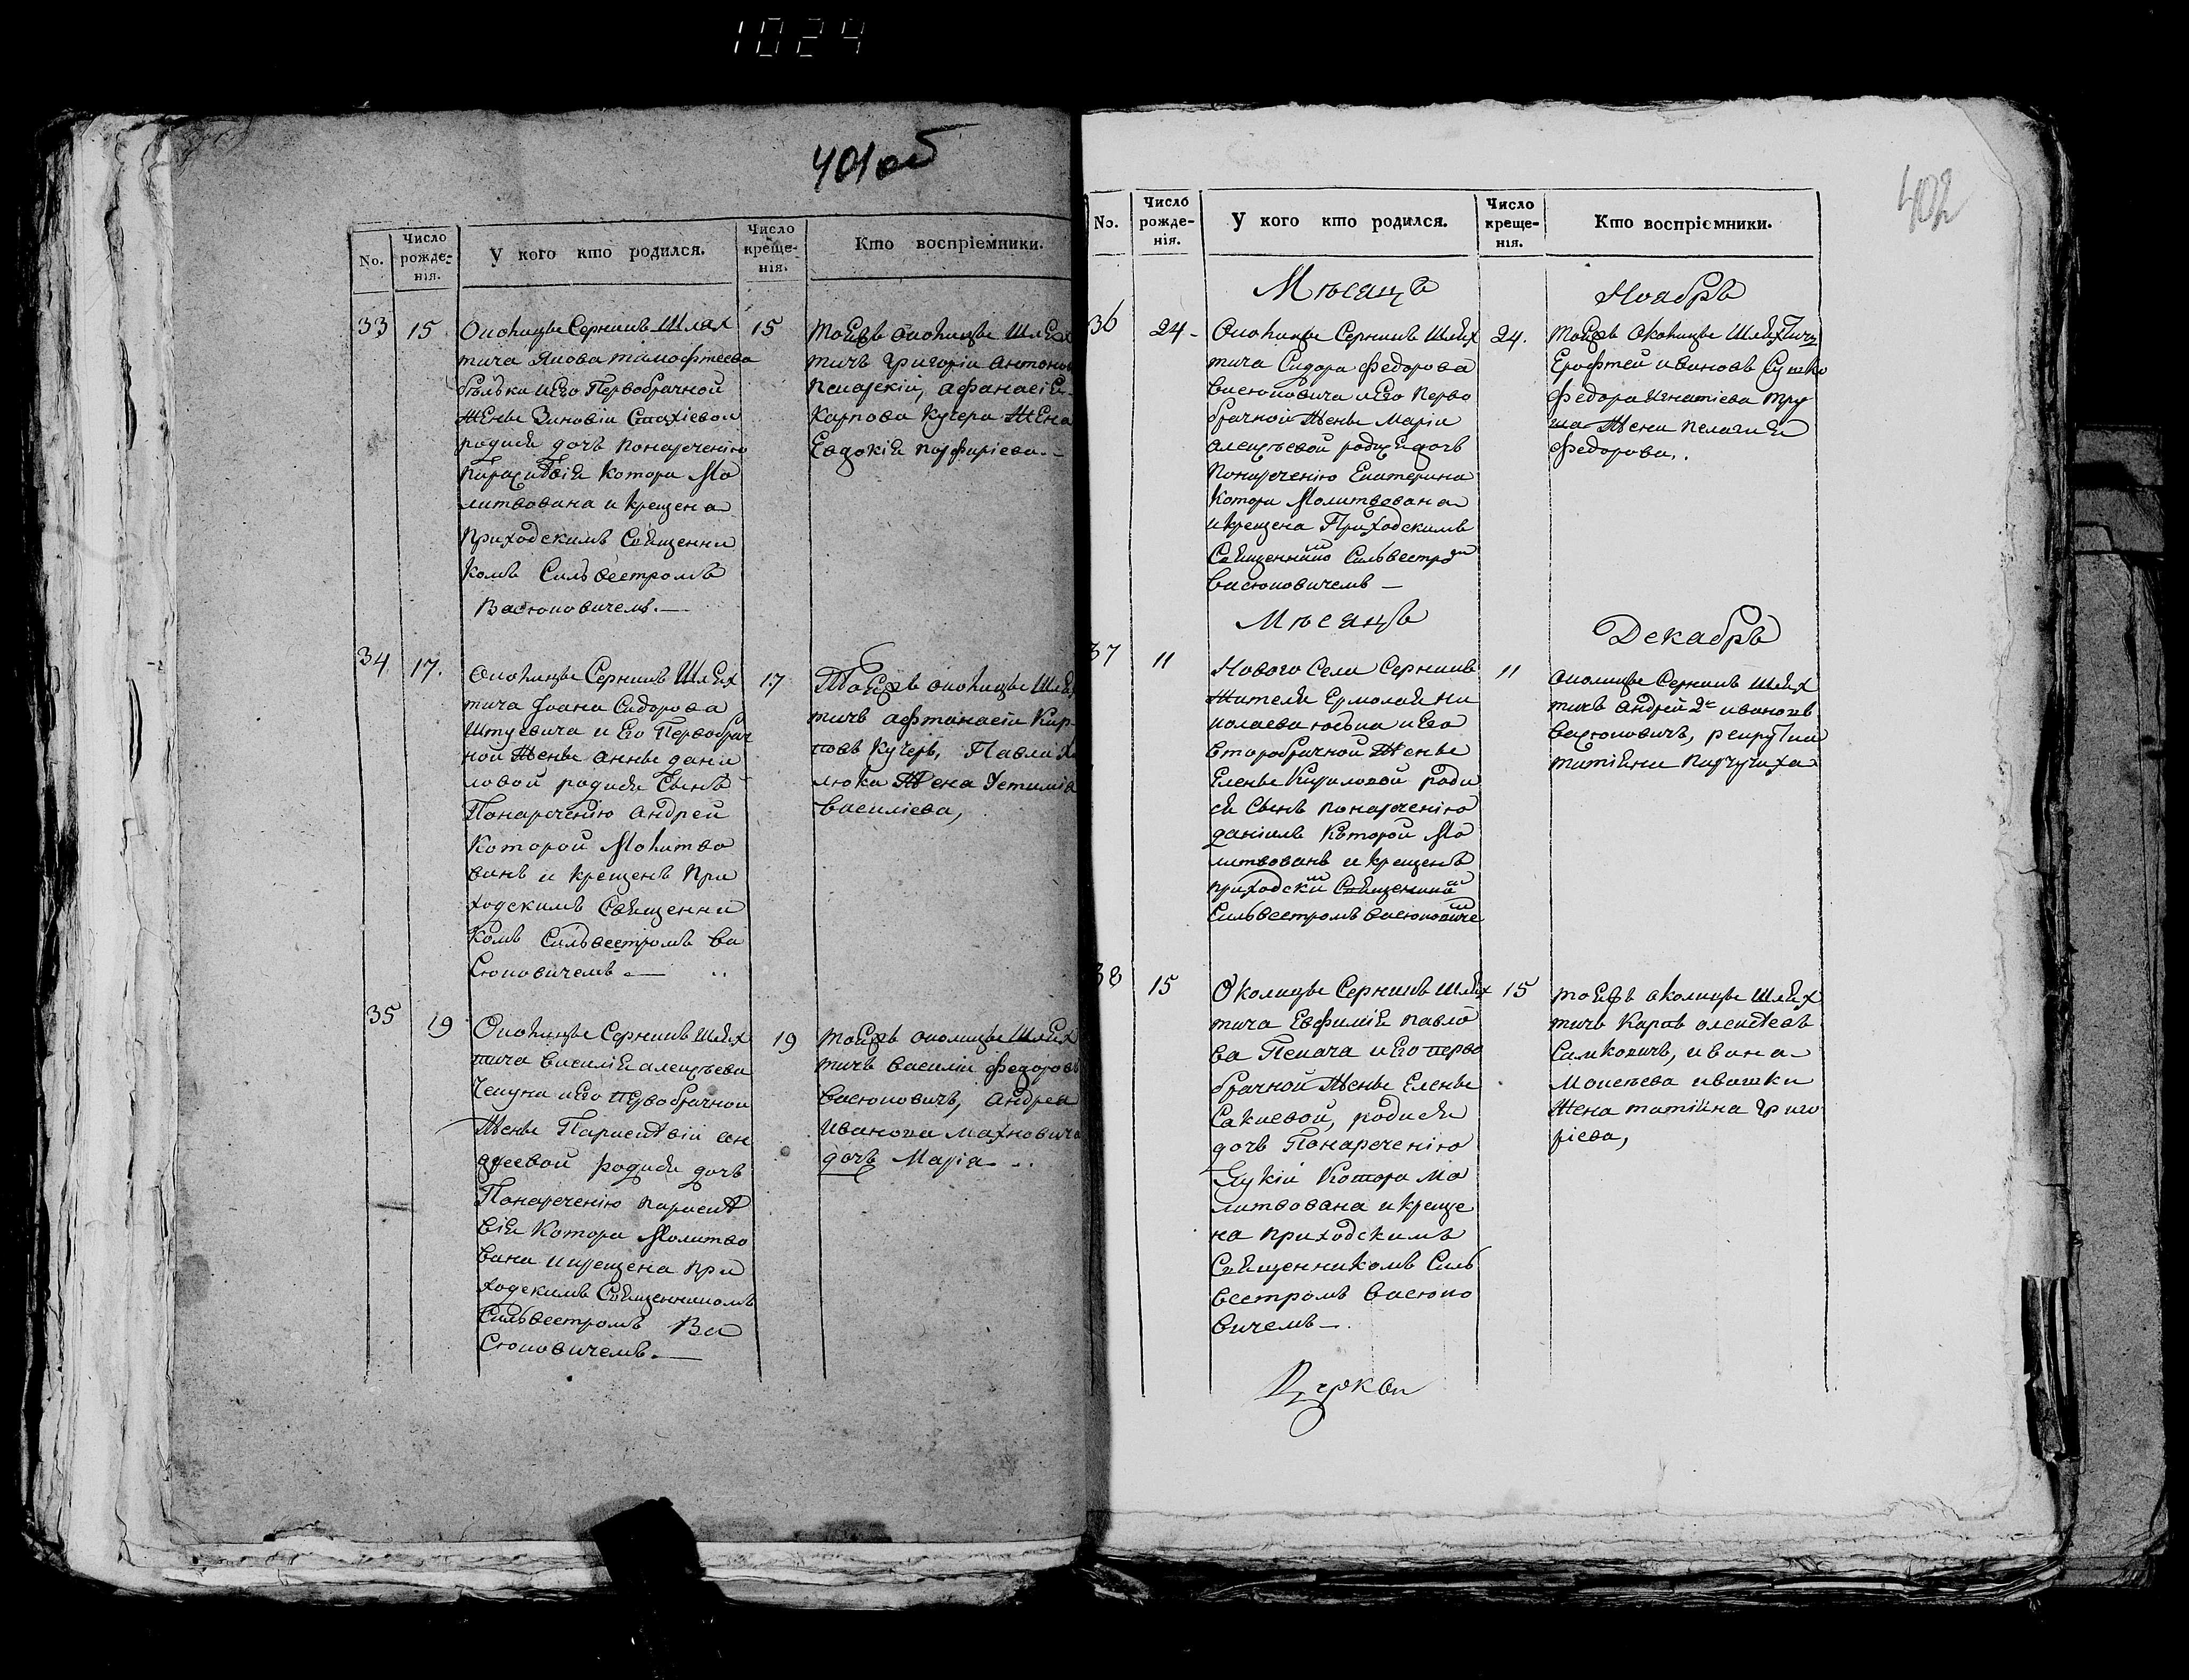 1024
401об
No.
Число рожде-нія.
У кого кто родился.
Число креще-нія.
Кто воспріемники.
33
15
Околицы Серникъ Шлях
тича Якова тимофтеева
и его Первобрачной
Женьі Зиновіи Стахіевой
родися дочь понареченію
Параскевія котора Мо
литвована и крещена
Приходскимъ Священни
комъ Сильвестромъ
Васюковичемъ.—
15
тоейжъ околицы Шлях
тичъ Григорій Антонов
афанасія
Карпова Кучера Жена
Евдокія порфиріева.—
34
17.
Околицы Серникъ Шлях
тича Іоана Сидорова
и его Первобрач
ной Женьі Анны дани
ловой родися Сынъ
Понареченію Андрей
Которой Молитво
ванъ и крещенъ При
ходскимъ Священни
комъ Сильвестромъ Ва
сюковичемъ.—
17
Тоейжъ околицы Шлях
тичъ афтанасій Кар-
повъ Кучеръ, Павла
люка Жена Устимія
Василіева,
35
19
Околицы Серникъ Шлях
тича Василія алексѣева
и его первобрачной
Женьі Параскевіи ан
дреевой родися дочь
Понареченію параскев
вія Котора Молитво
вана икрещена при
ходскимъ Священникомъ
Сильвестромъ Ва
сюковичемъ.—
19
тоейжъ околицы Шлях
тичъ Василій федоровъ
Васюковичъ, Андрея
Иванова Махновича
дочь Марія.
402
No.
Число рожде-нія.
У кого кто родился.
Число креще-нія.
Кто воспріемники.
Мѣсяцъ
Ноябрь
36
24-
Околицы Серникъ Шлях
тича Сидора федорова
Васюковича и его перво
брачной Женьі Маріи
алексѣевой родися дочь
Понареченію Екатерина
Котора Молитвована
и крещена Приходскимъ
Священникомъ Сильвестромъ
Васюковичемъ —
24.
тоейжъ Околицы Шляхтичъ
Ерофтей ивановъ Сушко
федора игнатіева
Жена пелагия
федорова.
Мѣсяцъ
Декабрь
37
11
Нового Села Серникъ
Жителя Ермолая Ни
колаева и его
второбрачной Женьі
Еленьі Кириловой роди
ся Сынъ понареченію
даніилъ Которой Мо
литвованъ и крещенъ
приходским Священником
Сильвестромъ Васюковичем
11
околицы Серникъ Шлях
тичъ Андрей 2й ивановъ
Васюковичъ,
татіяна
38
15
Околицы Серникъ Шлях
тича Евфимія павло
ва и его перво
брачной Женьі Еленьі
Сакиевой, родися
дочь Понареченію
Лукія Котора Мо
литвована и креще
на приходскимъ
Священникомъ Силь
вестромъ Васюко
вичемъ —.
15
тоейжъ околицы Шлях
тичъ Карпъ
Симковичъ, ивана
Моисѣева ивашки
Жена татіяна Григо
ріева,
Церкви